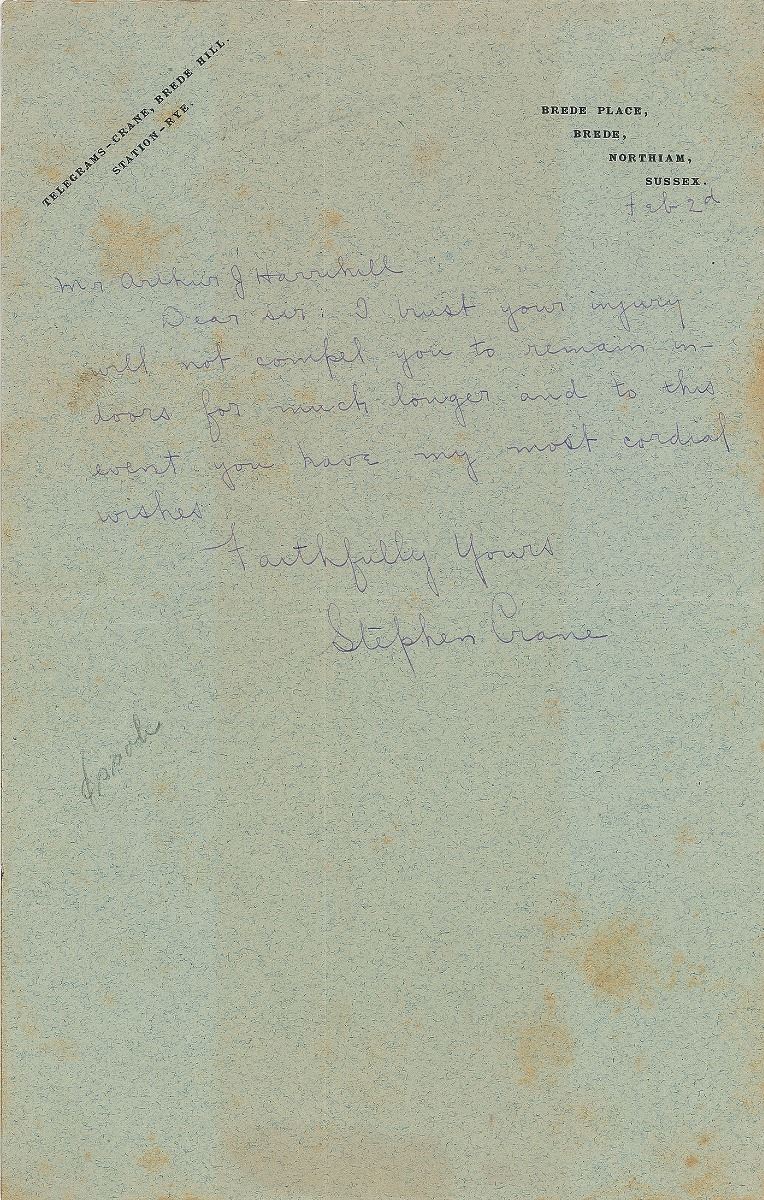 TELEGRAMS-CRANE, BREDE HILL.
STATION-RYE.
BREDE PLACE,
BREDE,
NORTHIAM,
SUSSEX.
Feb 2d
Mr Arthur J
Dear sir: I trust your injury
will not compel you to remain in-
doors for much longer and to this
event you have my most cordial
wishes
Faithfully Yours
Stephen Crane